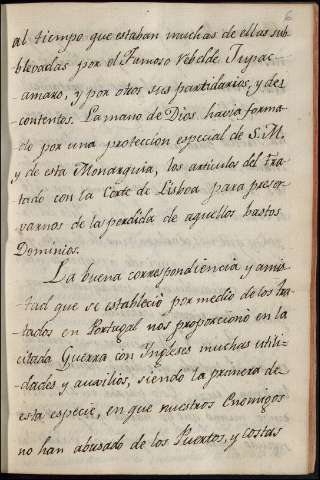 6
al tiempo que estaban muchas de ellas sub
blevadas por el Famoso rebelde Tupac-
amaro, y por otros sus partidarios, y des
contentos. La mano de Dios havia forma-
do por una proteccion especial de S. M.
y de esta Monarquia, los articulos del tra-
tado con la Corte de Lisboa para preser-
varnos de la perdida de aquellos bastos
Dominios.
La buena correspondiencia y amis-
tad que se estableciò por medio de los tra-
tados en Portugal nos proporcionó en la
citada Guerra con Ingleses muchas utili-
dades y auxilios, siendo la primera de
esta especie, en que nuestros Enemigos
no han abusado de los Puertos, y costas